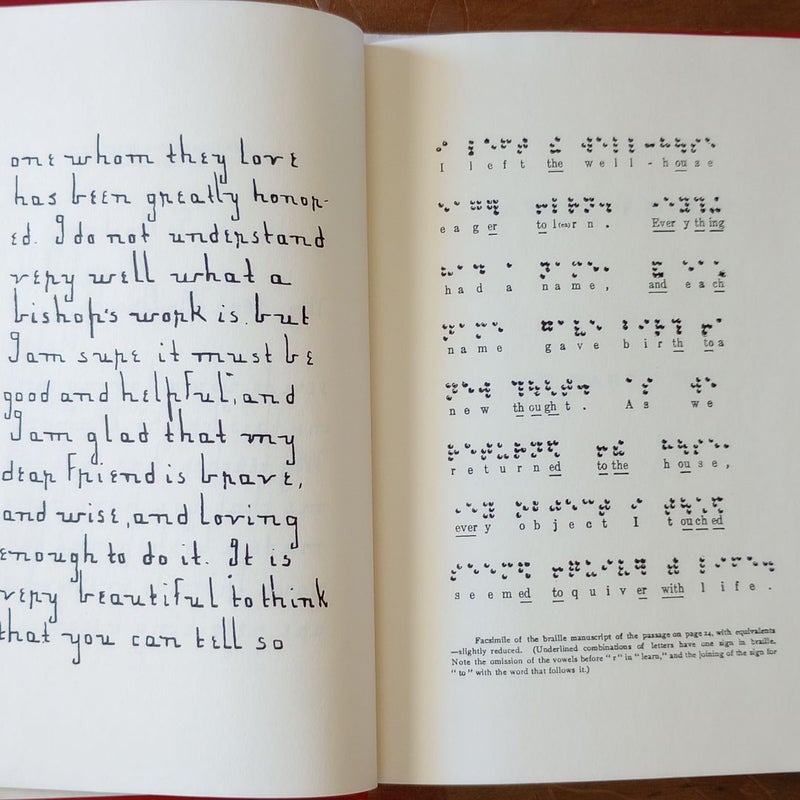 one whom they love
has been greatly honor-
ed. I do not understand
very well what a
bishop's work is, but
I am sure it must be
good and helpful, and
I am glad that my
dear friend is brave,
and wise, and loving
enough to do it. It is
very beautiful to think
that you can tell so
I left the well-house
eager to l(ea)rn. Everything
had a name, and each
name gave birth to a
new thought. As we
returned to the house,
every object I touched
seemed to quiver with life.
Facsimile of the braille manuscript of the passage on page 24, with equivalents
—slightly reduced. (Underlined combinations of letters have one sign in braille.
Note the omission of the vowels before "r" in "learn," and the joining of the sign for
"to" with the word that follows it.)